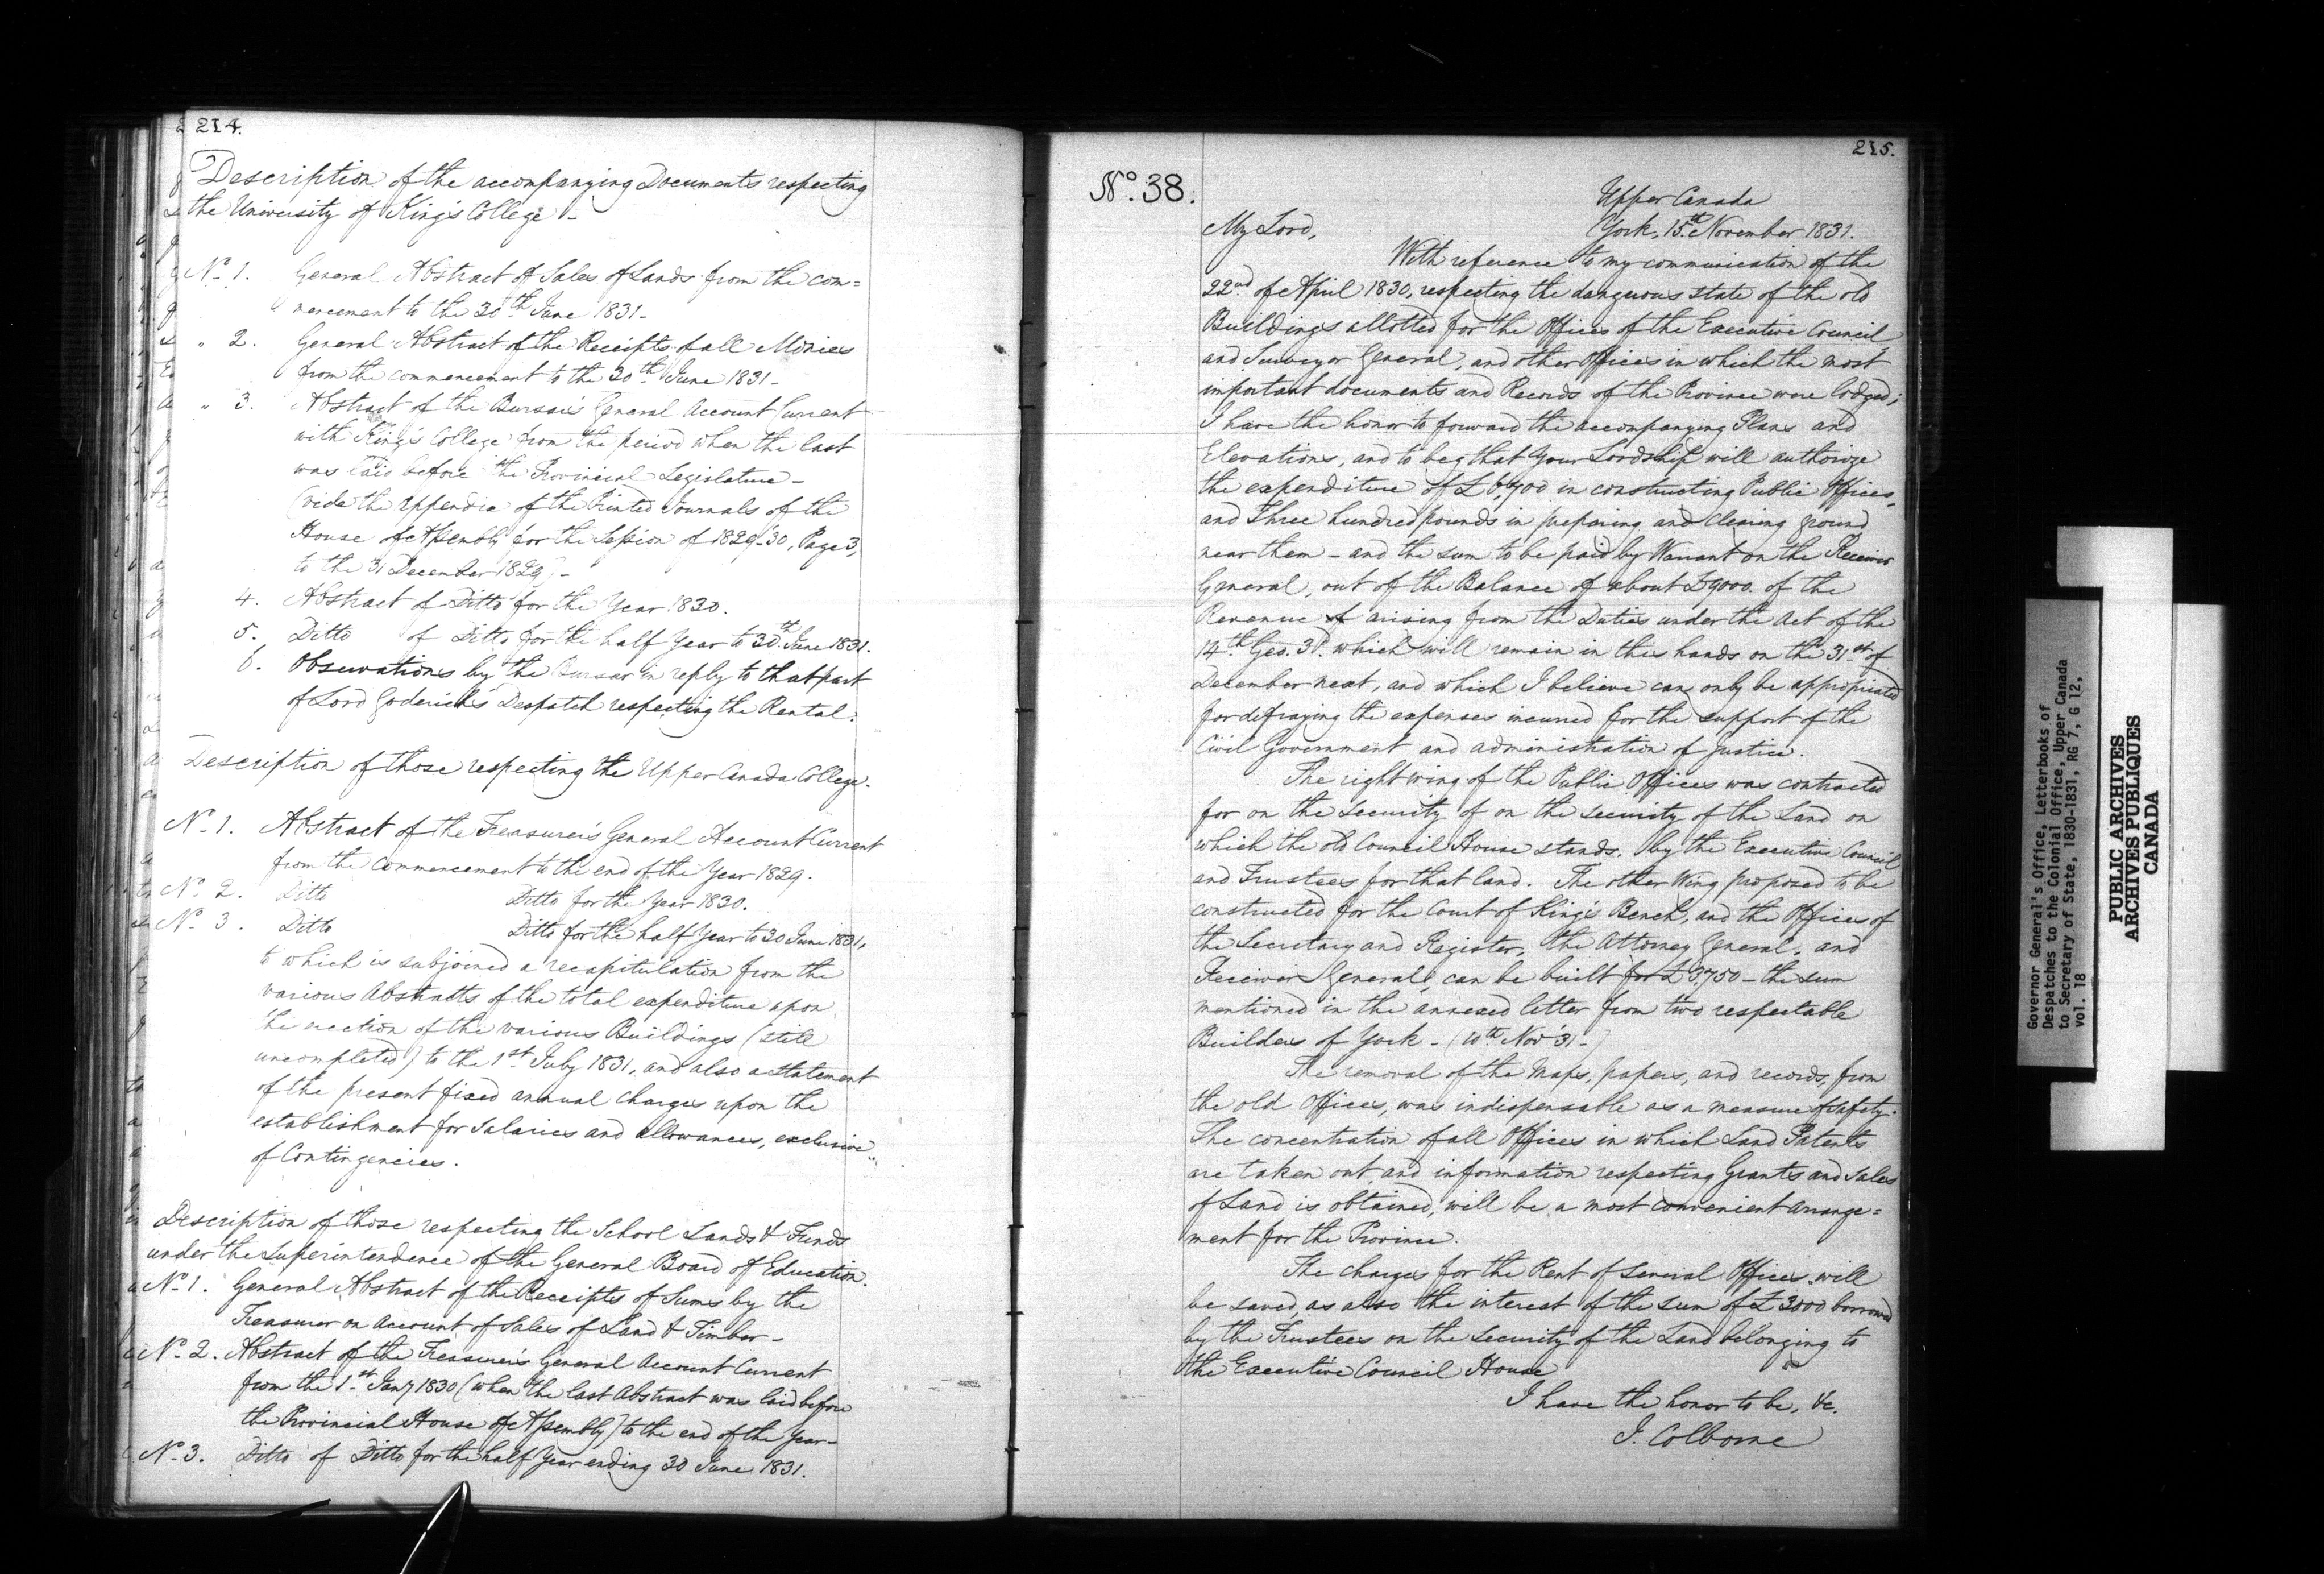 214.
Description of the accompanying Documents respecting
the University of King's College -
No. 1. General Abstract of Sales of Lands from the com=
mencement to the 30th June 1831-
" 2. General Abstract of the Receipts of all Monies
from the commencement to the 30th June 1831-
" 3. Abstract of the Bursar's General Account Current
with King's College from the period when the last
was laid before the Provincial Legislature -
(vide the Appendix of the Printed Journals of the
House of Assembly for the Session of 1829-30, Page 3,
to the 31 December 1829) -
4. Abstract of Ditto for the Year 1830.
5. Ditto of Ditto for the half Year to 30th June 1831.
6. Observations by the Bursar in reply to that part
of Lord Goderich's Despatch respecting the Rental.
Description of those respecting the Upper Canada College.
No. 1. Abstract of the Treasurer's General Account Current
from the commencement to the end of the Year 1829.
No. 2. Ditto Ditto for the Year 1830.
No. 3. Ditto Ditto for the half Year to 30 June 1831,
to which is subjoined a recapitulation from the
various Abstracts of the total expenditure upon
the erection of the various Buildings (still
uncompleted) to the 1st July 1831, and also a statement
of the present fixed annual charges upon the
establishment for Salaries and allowances, exclusive
of Contingencies.
Description of those respecting the School Lands & Funds
under the Superintendence of the General Board of Education.
No. 1. General Abstract of the Receipts of Sums by the
Treasurer on Account of Sales of Land & Timber -
No. 2. Abstract of the Treasurer's General Account Current
from the 1st Jany 1830 (when the last Abstract was laid before
the Provincial House of Assembly) to the end of the Year -
No. 3. Ditto of Ditto for the half Year ending 30 June 1831.
215.
No. 38.
Upper Canada
York, 15th November 1831.
My Lord,
With reference to my communication of the
22nd of April 1830, respecting the dangerous state of the old
Buildings allotted for the Offices of the Executive Council
and Surveyor General, and other Offices in which the most
important documents and Records of the Province were lodged;
I have the honor to forward the accompanying Plans and
Elevations, and to beg that Your Lordship will authorize
the expenditure of £6,700 in constructing Public Offices,
and Three hundred pounds in preparing and clearing ground
near them - and the sum to be paid by Warrant on the Receiver
General, out of the Balance of about £9000. of the
Revenue of arising from the Duties under the Act of the
14th Geo. 3d. which will remain in his hands on the 31st of
December next, and which I believe can only be appropriated
for defraying the expenses incurred for the support of the
Civil Government and administration of Justice.
The right wing of the Public Offices was contracted
for on the security of on the security of the Land on
which the old Council House stands. by the Executive Council
and Trustees for that land. The other Wing proposed to be
constructed for the Court of King's Bench, and the Offices of
the Secretary and Register, the Attorney General, and
Receiver General, can be built for £3,750 - the sum
mentioned in the annexed letter from two respectable
Builders of York - (10th Novr 31 - )
The removal of the Maps, papers, and records, from
the old Offices, was indispensable as a measure of safety.
The concentration of all Offices in which Land Patents
are taken out, and information respecting Grants and Sales
of Land is obtained, will be a most convenient arrange=
ment for the Province.
The charges for the Rent of several Offices will
be saved, as also the interest of the sum of £3000 borrowed
by the Trustees on the security of the Land belonging to
the Executive Council House
I have the honor to be, &c.
J. Colborne
Governor General's Office, Letterbooks of
Despatches to the Colonial Office, Upper Canada
to Secretary of State, 1830-1831, RG 7, G 12,
vol. 18
PUBLIC ARCHIVES
ARCHIVES PUBLIQUES
CANADA